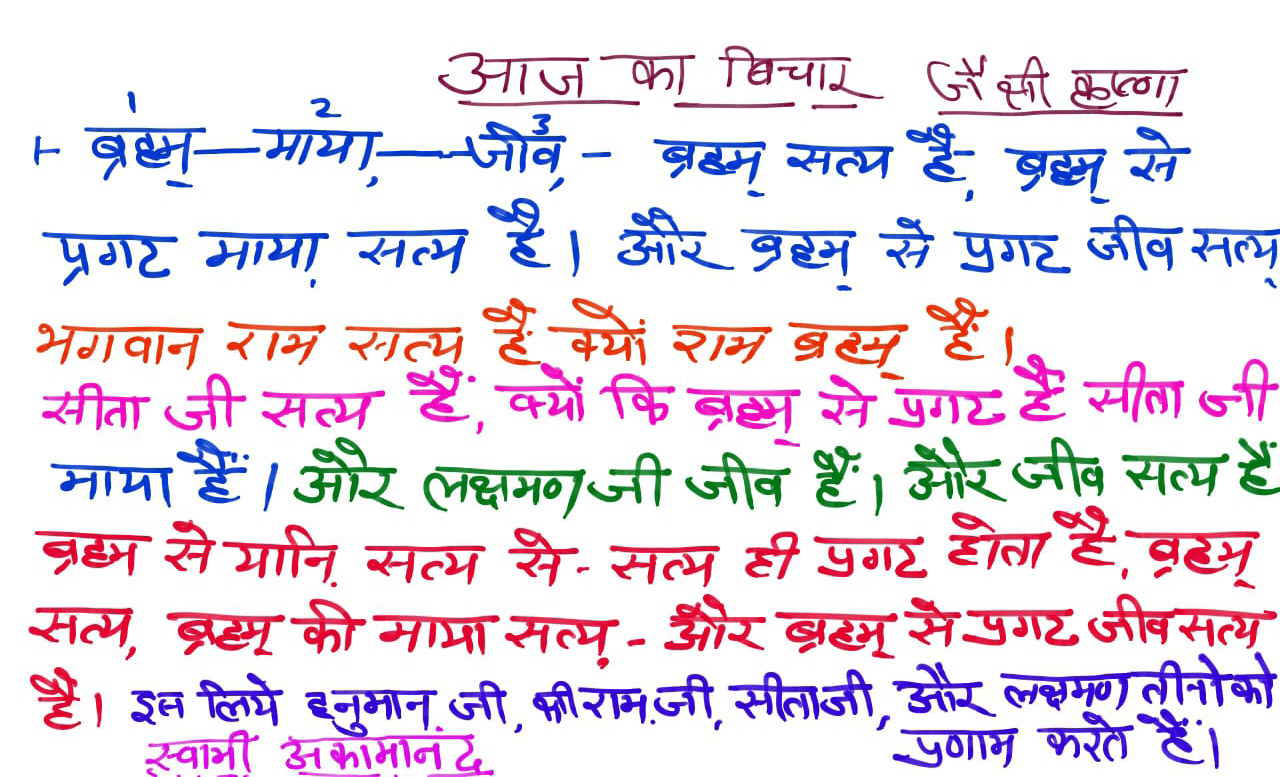 आज का बिचार जै श्री कृष्णा
1 2 3
1- ब्रह्म् — माया, — जीव, - ब्रह्म् सत्य है, ब्रह्म् से
प्रगट माया, सत्य है। और ब्रह्म् से प्रगट जीव सत्य्
भगवान राम सत्य हैं क्यों राम ब्रह्म् हैं।
सीता जी सत्य हैं, क्यों कि ब्रह्म् से प्रगट हैं सीता जी
माया हैं। और लक्षमण जी जीव हैं। और जीव सत्य हैं
ब्रह्म से यानि. सत्य से - सत्य ही प्रगट होता है, ब्रह्म्
सत्य, ब्रह्म् की माया सत्य, - और ब्रह्म् से प्रगट जीव सत्य
है। इस लिये हनुमान जी, श्री राम जी, सीता जी, और लक्षमण तीनो को
स्वामी अकामानंद प्रणाम करते हैं।